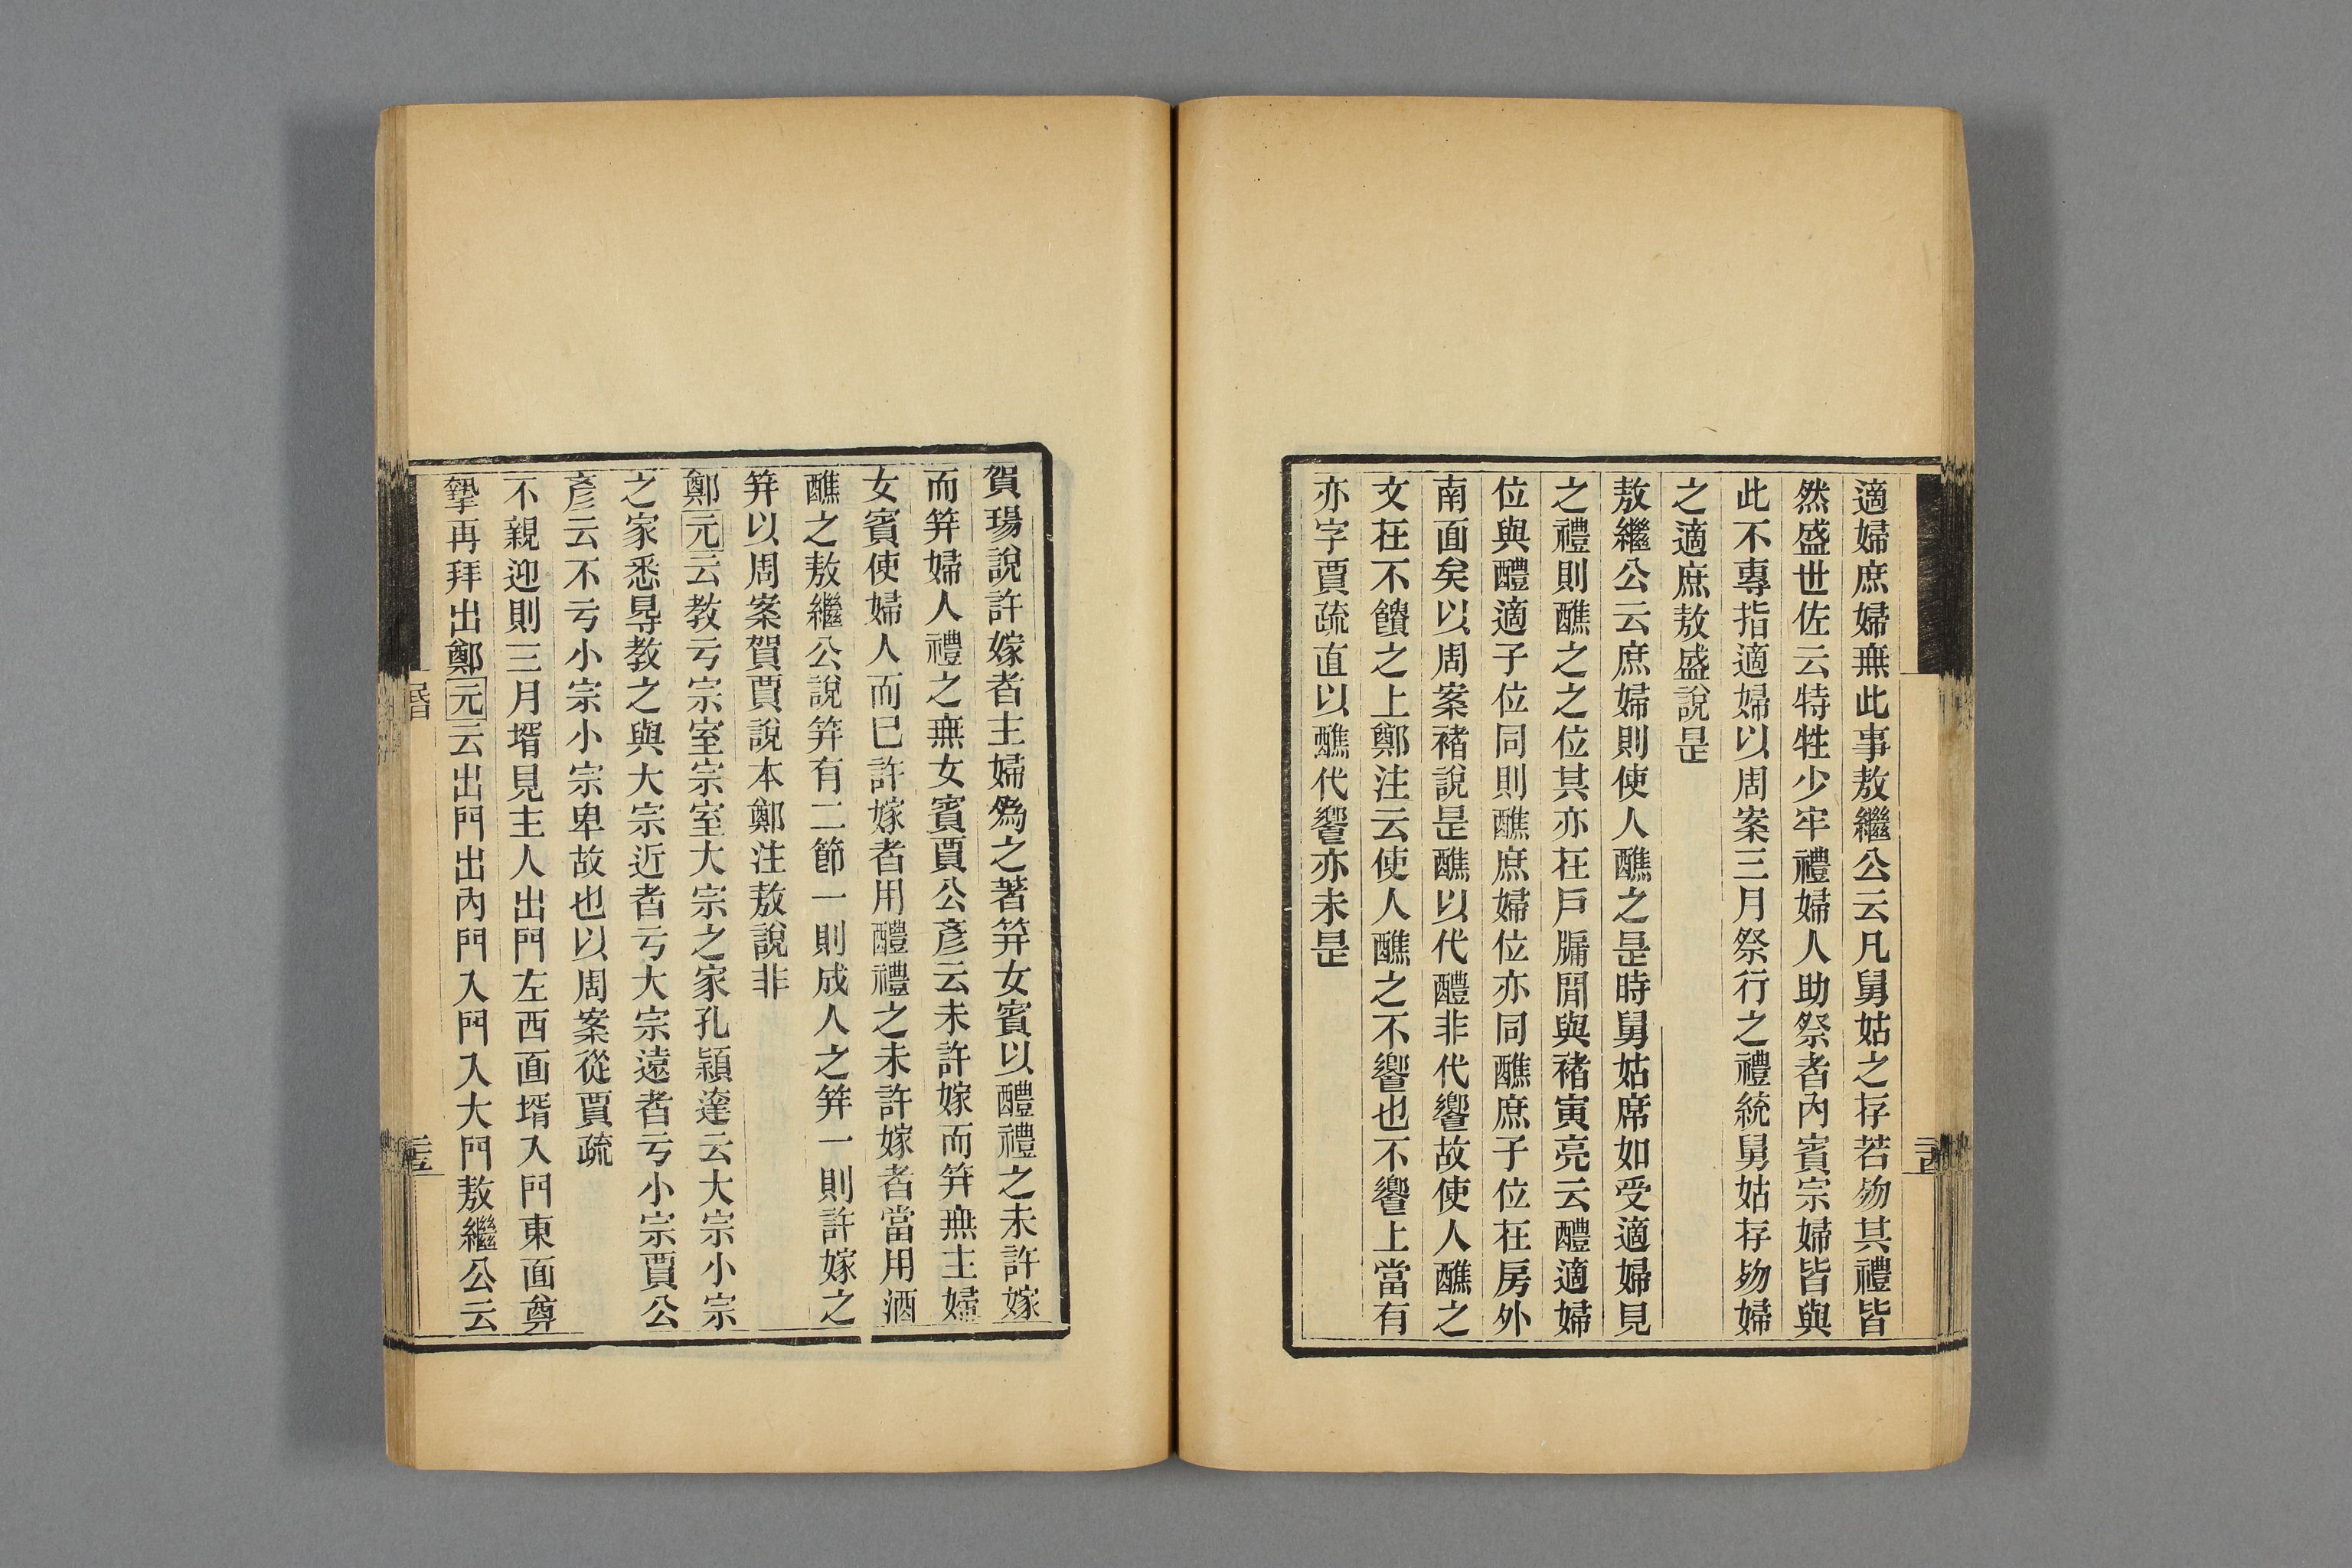 適婦庶婦無此事敖繼公云凡舅姑之存若歾其禮皆
然盛世佐云特牲少牢禮婦人助祭者內賓宗婦皆與
此不專指適婦以周案三月祭行之禮統舅姑存歾婦
之適庶敖盛說是
敖繼公云庶婦則使人醮之是時舅姑席如受適婦見
之禮則醮之之位其亦在戶牖閒與褚寅亮云醴適婦
位與醴適子位同則醮庶婦位亦同醮庶子位在房外
南面矣以周案褚說是醮以代醴非代饗故使人醮之
文在不饋之上鄭注云使人醮之不饗也不饗上當有
亦字賈疏直以醮代饗亦未是
二十四
賀瑒說許嫁者主婦爲之著笄女賓以醴禮之未許嫁
而笄婦人禮之無女賓賈公彥云未許嫁而笄無主婦
女賓使婦人而已許嫁者用醴禮之未許嫁者當用酒
醮之敖繼公說笄有二節一則成人之笄一則許嫁之
笄以周案賀賈說本鄭注敖說非
鄭元云教亏宗室宗室大宗之家孔穎達云大宗小宗
之家悉㝵教之與大宗近者亏大宗遠者亏小宗賈公
彥云不亏小宗小宗卑故也以周案從賈疏
不親迎則三月壻見主人出門左西面壻入門東面奠
摯再拜出鄭元云出門出內門入門入大門敖繼公云
昏
二十五